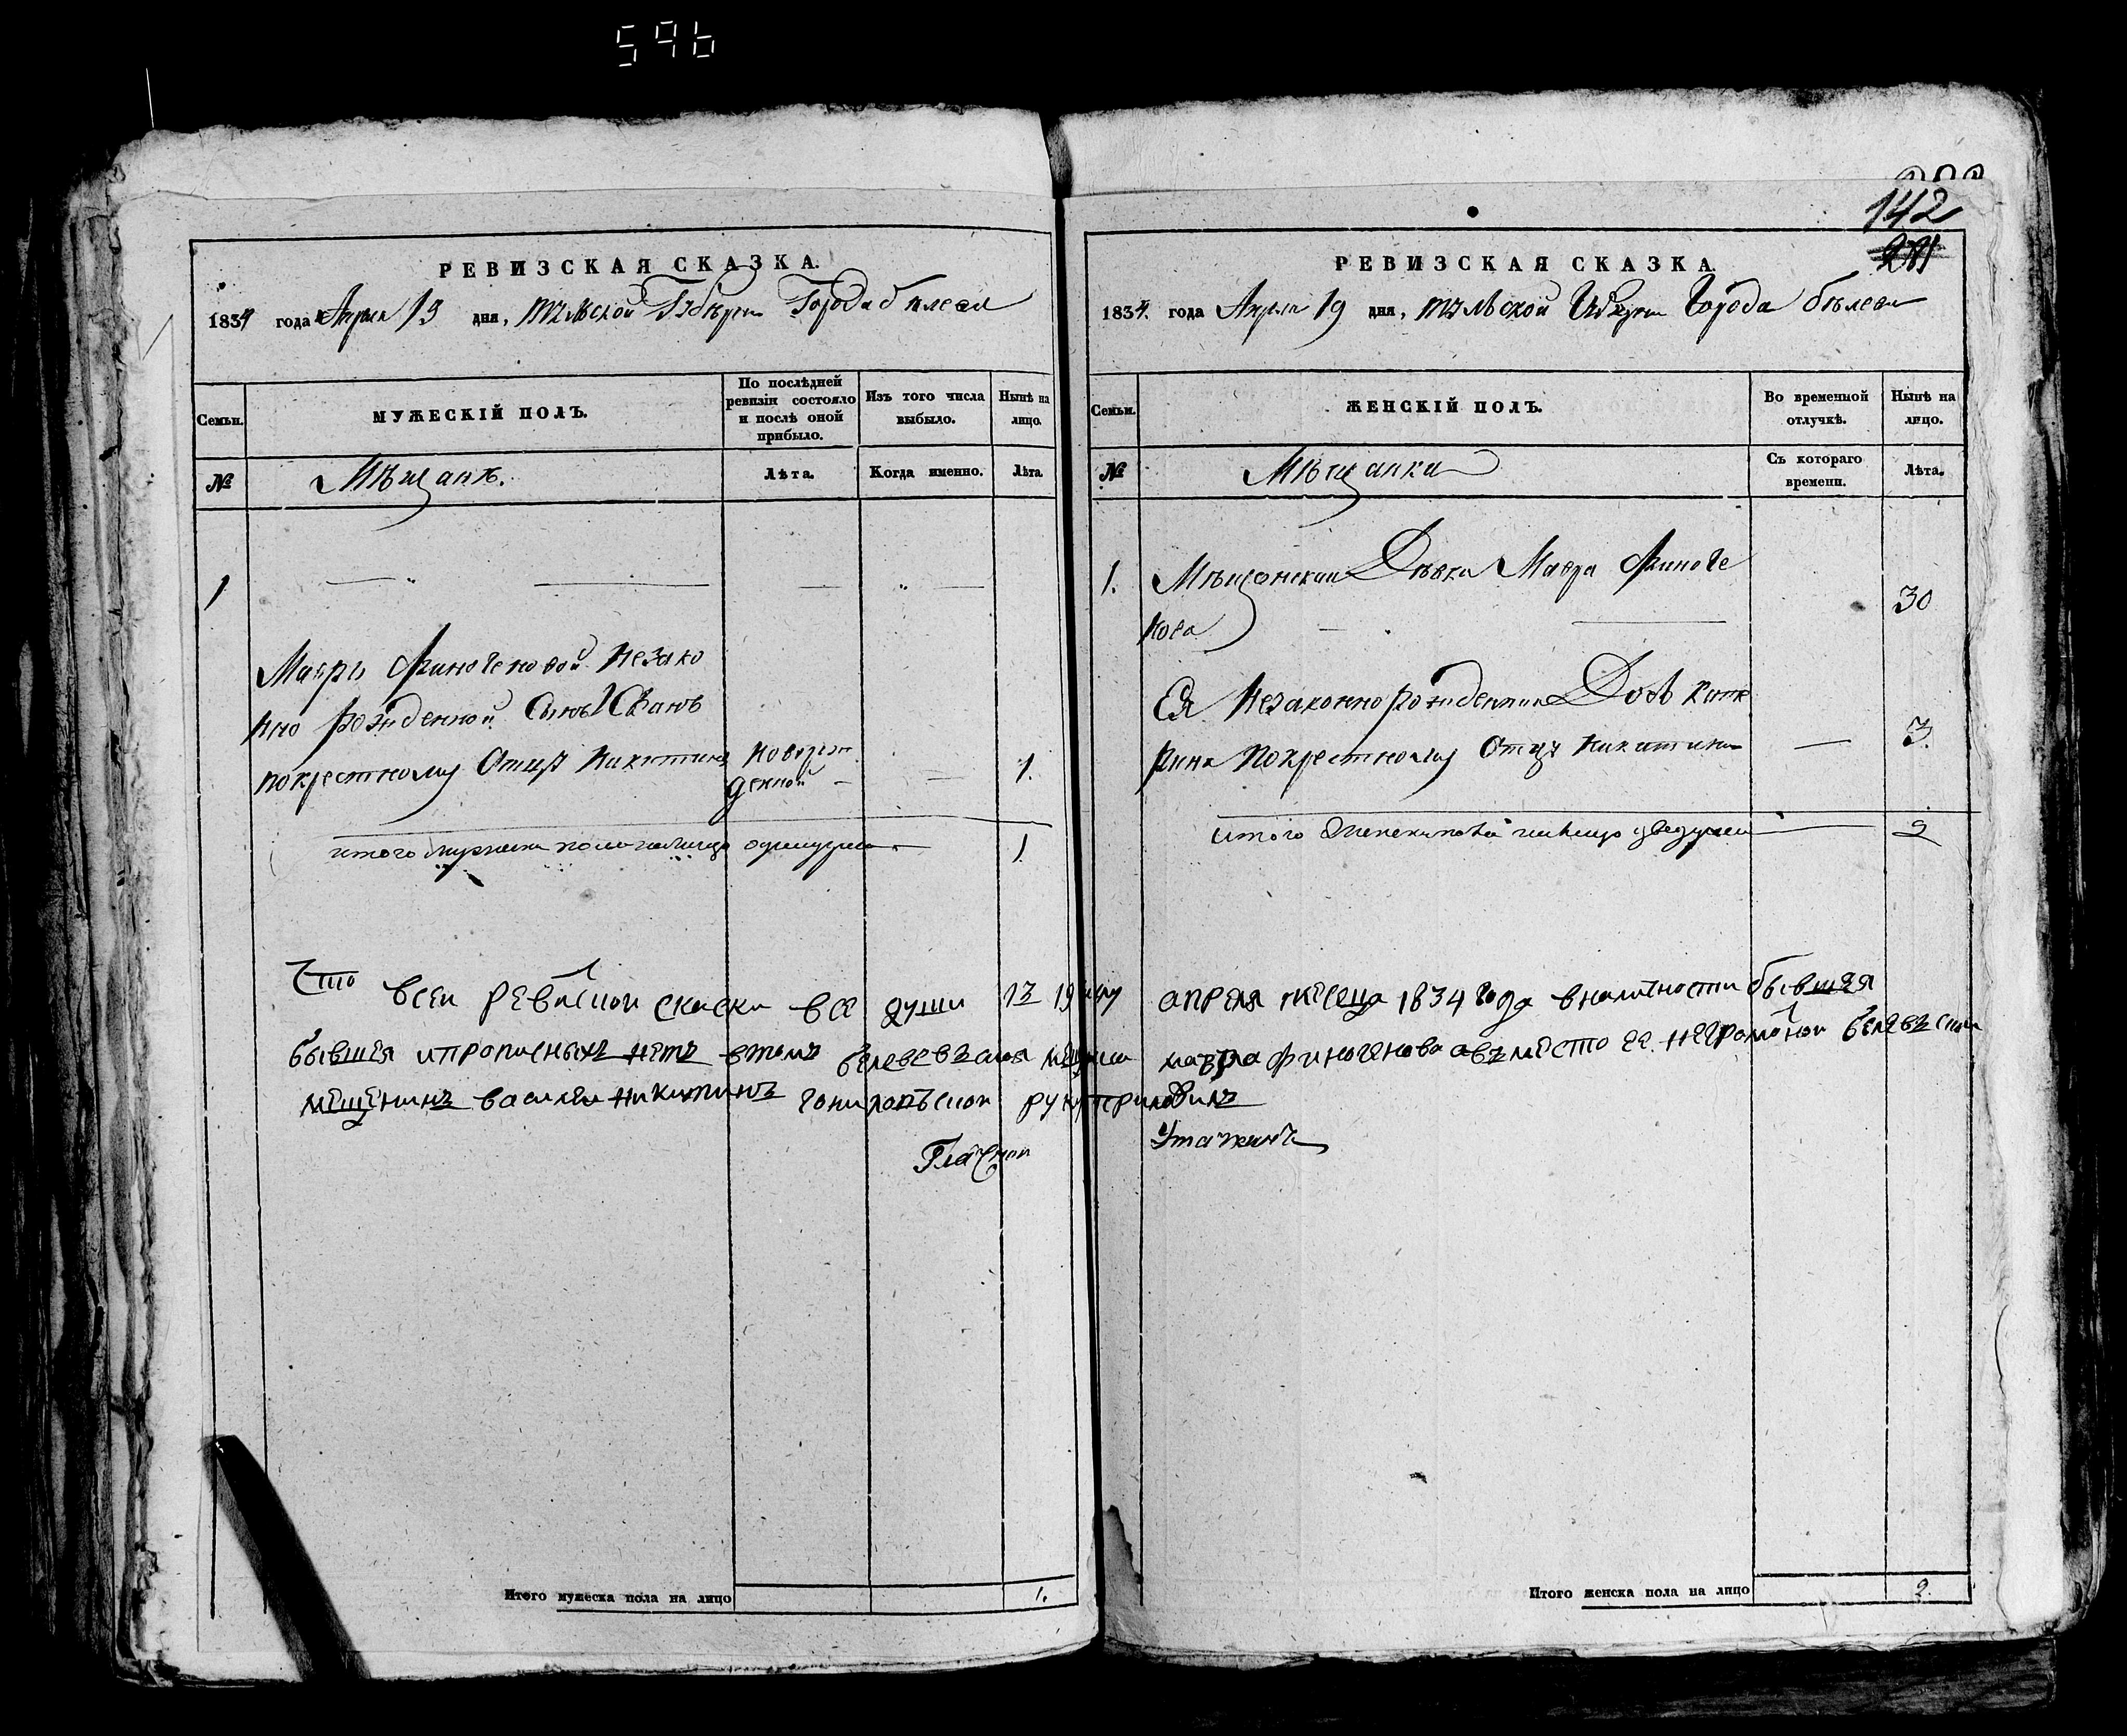 596
142
РЕВИЗСКАЯ СКАЗКА.
1834 года Апреля 19 дня, Тульской Губерни Города белева
Семьи. МУЖЕСКІЙ ПОЛЪ. По послѣдней ревизіи состояло и послѣ оной прибыло. Изъ того числа выбыло. Нынѣ на лицо.
№ Мѣщанѣ. Лѣта. Когда именно. Лѣта
1
Мавры Финогеновой Незако
нно рожденной Сынъ Иванъ
покрестному Отцу Никитинъ новорож
денной 1.
итого мужеска пола налицо одна душа 1
РЕВИЗСКАЯ СКАЗКА
1834. года Апреля 19 дня, Тульской Губерни Города бѣлева
Семьи. ЖЕНСКІЙ ПОЛЪ. Во временной отлучкѣ. Нынѣ на лицо.
№ Мѣщанки Съ котораго времени. Лѣта.
1. Мѣщанская Дѣвка Мавра Финоге
нова 30
Ея Незаконно рожденная Дочь Кате
рина Покрестному Отцу Никитина 3.
итого женска пола налицо две души 2
Что всеи ревиской скаски все души 19 апреля месеца 1834 года вналичности бывшея
бывшея ипрописныхъ нетъ втомъ белевъская мещанка мавра финогенова авместо ее неграмоной белевъской
мещенинъ василеи никитинъ руку приложилъ
Гласной
Итого мужеска пола на лицо 1.
Итого женска пола на лицо 2.